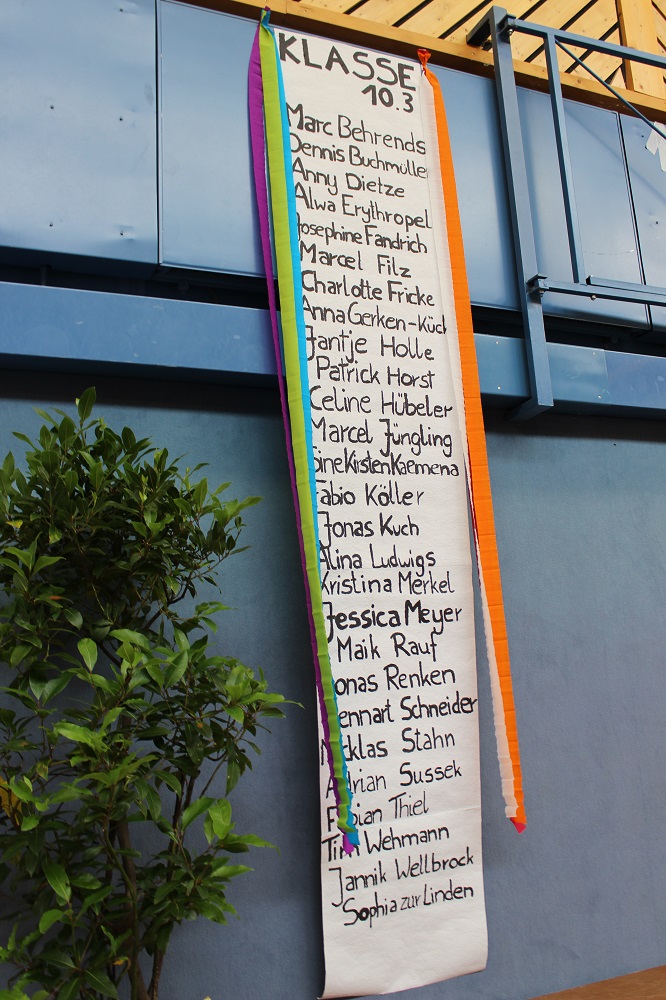 KLASSE
10.3
Marc Behrends
Dennis Buchmülle
Anny Dietze
Alwa Erythropel
Josephine Fandrich
Marcel Filz
Charlotte Fricke
Anna Gerken-Kück
Jantje Holle
Patrick Horst
Celine Hübeler
Marcel Jüngling
Sine Kirsten Kaemena
Fabio Köller
Jonas Kuch
Alina Ludwigs
Kristina Merkel
Jessica Meyer
Maik Rauf
Jonas Renken
Lennart Schneider
Nicklas Stahn
Adrian Sussek
Fabian Thiel
Tim Wehmann
Jannik Wellbrock
Sophia zur Linden